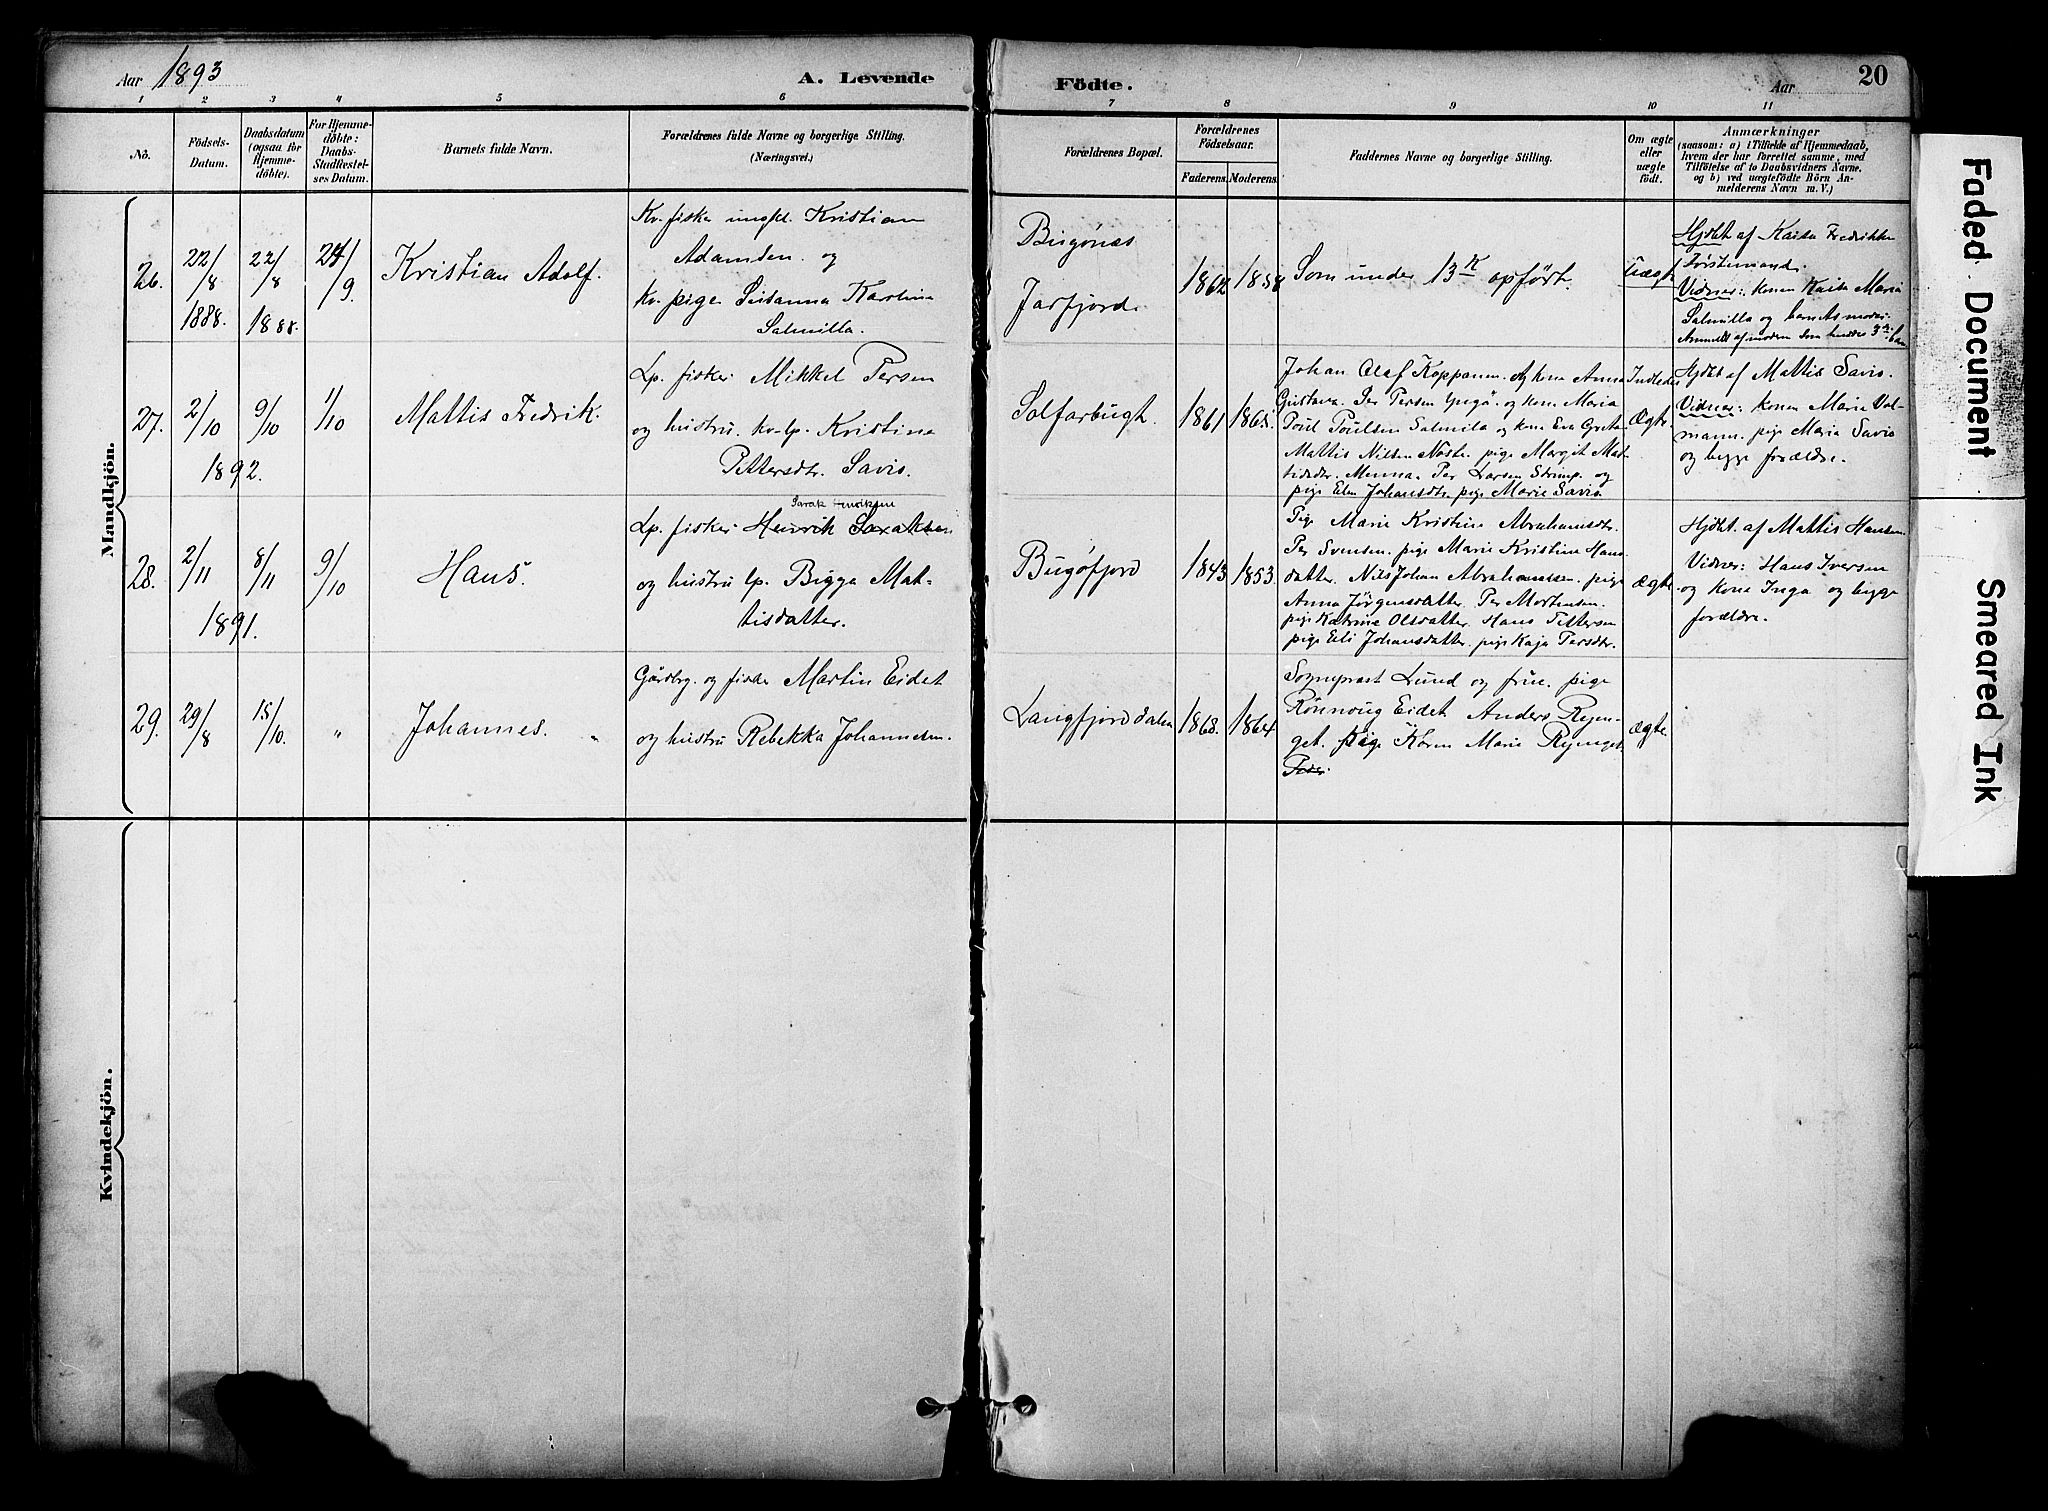 Aar 1893
A. Levende
Födte.
Aar
20
1 2 3 4 5 6 7 8 9 10 11
No.
Födsels-
Datum.
Daabsdatum
(ogsaa for
Hjemme-
döbte).
For Hjemme-
döbte:
Daabs-
Stadfæstel-
ses Datum.
Barnets fulde Navn.
Forældrenes fulde Navne og borgerlige Stilling.
(Næringsvei.)
Forældrenes Bopæl.
Forældrenes
Födselsaar.
Faderens.
Moderens.
Faddernes Navne og borgerlige Stilling.
Om ægte
eller
uægte
født.
Anmærkninger
(saasom: a) i Tilfælde af Hjemmedaab,
hvem der har forrettet samme, med
Tilföielse af to Daabsvidners Navne.
og b) ved uægtefödte Börn An-
melderens Navn m. V.)
Mandkjön.
26.
22/8
1888.
22/8
1888.
24/9
Kristian Adolf.
Kv. fisker ungkl. Kristian
Adamsen og
kv. pige Susanna Karolina
Salmilla.
Bugönæs
Jarfjord
1862
1858
Som under 13 K opført.
Uægt.
Hjdbt af Kaisa Fredrikke
Vidner: konen Kaisa Maria
Salmilla og barnets moder.
Anmeldt af moderen som hendes 3die barn
27.
2/10
1892.
9/10
1/10
Mattis Fredrik.
Lp. fisker Mikkel Persen
og hustru kv-lp. Kristine
Pettersdtr. Savio.
Salfarbugt.
1861
1865.
Johan Olaf Koppanen og kone Anna
Gustava. Per Persen og kone Maria
Poul Poulsen Salmila og kone Eva Greta
Mattis Nilsen pige Margit Mat-
tisdtr. Per Larsen Strimp. og
pige Elen Johansdtr. pige Marie Savio
Ægte.
Hjdbt af Mattis Savio.
Vidner: konen Marie Val-
mann. pige Maria Savio
og begge forældre.
28.
2/11
1891.
8/11
9/10
Hans.
Sarak Henriksen
Lp. fisker Henrik Saraksen
og hustru lp. Bigga Mat-
tisdatter.
Bugöfjord
1843
1853.
Pige Marie Kristine Abrahamsdtr.
Per Svensen. pige Marie Kristine Hans-
datter. Nils Johan Abrahamsen. pige
Anna Jörgensdatter. Per Mortensen.
pige Katrine Olsdatter. Hans Pettersen
pige Eli Johansdatter. pige Kaja Persdtr.
ægte
Hjdbt. af Mattis Hansen
Vidner: Hans Iversen
og kone Inga og begge
forældre.
29.
29/8
15/10.
"
Johannes. "
Gårdbr. og fisker Martin Eidet
og hustru Rebekka Johannesen.
Langfjorddalen
1868.
1864
Sogneprest Lund og frue. pige
Rönnoug Eidet. Anders Rejen-
get. pige Karen Marie Rejenget.
Peder
Ægte.
Kvindekjön.
Faded Document
Smeared Ink